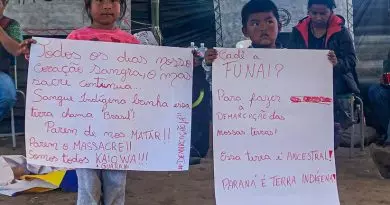 Todos os dias nosso
Coração sangra, o mas
sacre continua...
Sangue Indígena banha essa
terra chama Brasil!
Parem de nos MATAR!!
Parem o MASSACRE!!
Somos todos KAIOWA!!!
GUARANI
#DEMARCAÇÃO
Cadê a
FUNAI?
Para fazer a
DEMARCAÇÃO das
nossas terras!
Essa terra é ANCESTRAL!
PARANÁ É TERRA INDÍGENA!